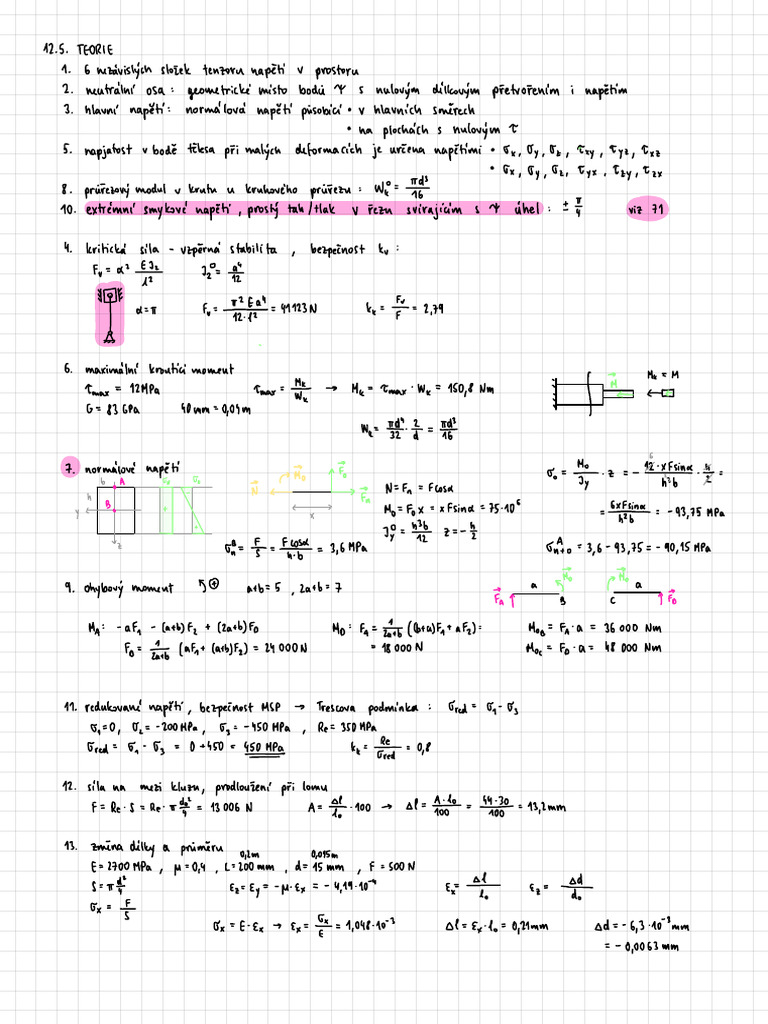 12.5. TEORIE
1. 6 nezávislých složek tenzoru napětí v prostoru
2. neutrální osa: geometrické místo bodů Ψ s nulovým délkovým přetvořením i napětím
3. hlavní napětí: normálová napětí působící • v hlavních směrech
• na plochách s nulovým τ
5. napjatost v bodě tělesa při malých deformacích je určena napětími • σx, σy, σz, τxy, τyz, τxz
• σx, σy, σz, τyx, τzy, τzx
8. průřezový modul v krutu u kruhového průřezu: Wk° = πd³/16
10. extrémní smykové napětí, prostý tah/tlak v řezu svírajícím s Ψ úhel: ± π/4 viz 71
4. kritická síla - vzpěrná stabilita, bezpečnost kv:
Fv = α² EJ2/l² J2° = a⁴/12
α = π Fv = π²Ea⁴/12·l² = 41123 N kk = Fv/F = 2,79
6. maximální kroutící moment
τmax = 12MPa τmax = Mk/Wk → Mk = τmax · Wk = 150,8 Nm M Mk = M
G = 83 GPa 40 mm = 0,04m
Wk = πd⁴/32 · 2/d = πd³/16
7. normálové napětí
b A
h B
y z
N Mo Fo Fn x
N = Fn = F cosα
Mo = Fo x = x F sinα = 75·10⁶
Jy° = h³b/12 z = -h/2
σo = Mo/Jy · z = - 12·xF sinα/h³b · h/2 =
= 6xF sinα/h²b = - 93,75 MPa
σn^B = F/S = F cosα/h·b = 3,6 MPa
σn+o^A = 3,6 - 93,75 = - 90,15 MPa
9. ohybový moment a+b = 5, 2a+b = 7
FA a Mo B C Mo a FD
MA: -aF1 - (a+b)F2 + (2a+b)FD MD: FA = 1/2a+b ((b+a)F1 + aF2) = MoB = FA · a = 36 000 Nm
FD = 1/2a+b (aF1 + (a+b)F2) = 24 000 N = 18 000 N MoC = FD · a = 48 000 Nm
11. redukované napětí, bezpečnost MSP → Trescova podmínka: σred = σ1 - σ3
σ1 = 0, σ2 = -200 MPa, σ3 = -450 MPa, Re = 350 MPa
σred = σ1 - σ3 = 0 + 450 = 450 MPa kk = Re/σred = 0,8
12. síla na mezi kluzu, prodloužení při lomu
F = Re · S = Re · π do²/4 = 13 006 N A = Δl/lo · 100 → Δl = A·lo/100 = 44·30/100 = 13,2 mm
13. změna délky a průměru
0,2m 0,015m
E = 2700 MPa, μ = 0,4, L = 200 mm, d = 15 mm, F = 500 N
S = π d²/4 εz = εy = -μ·εx = - 4,19·10⁻⁴ εx = Δl/lo εz = Δd/do
σx = F/S
σx = E·εx → εx = σx/E = 1,048·10⁻³ Δl = εx·lo = 0,21mm Δd = - 6,3·10⁻³ mm
= - 0,0063 mm